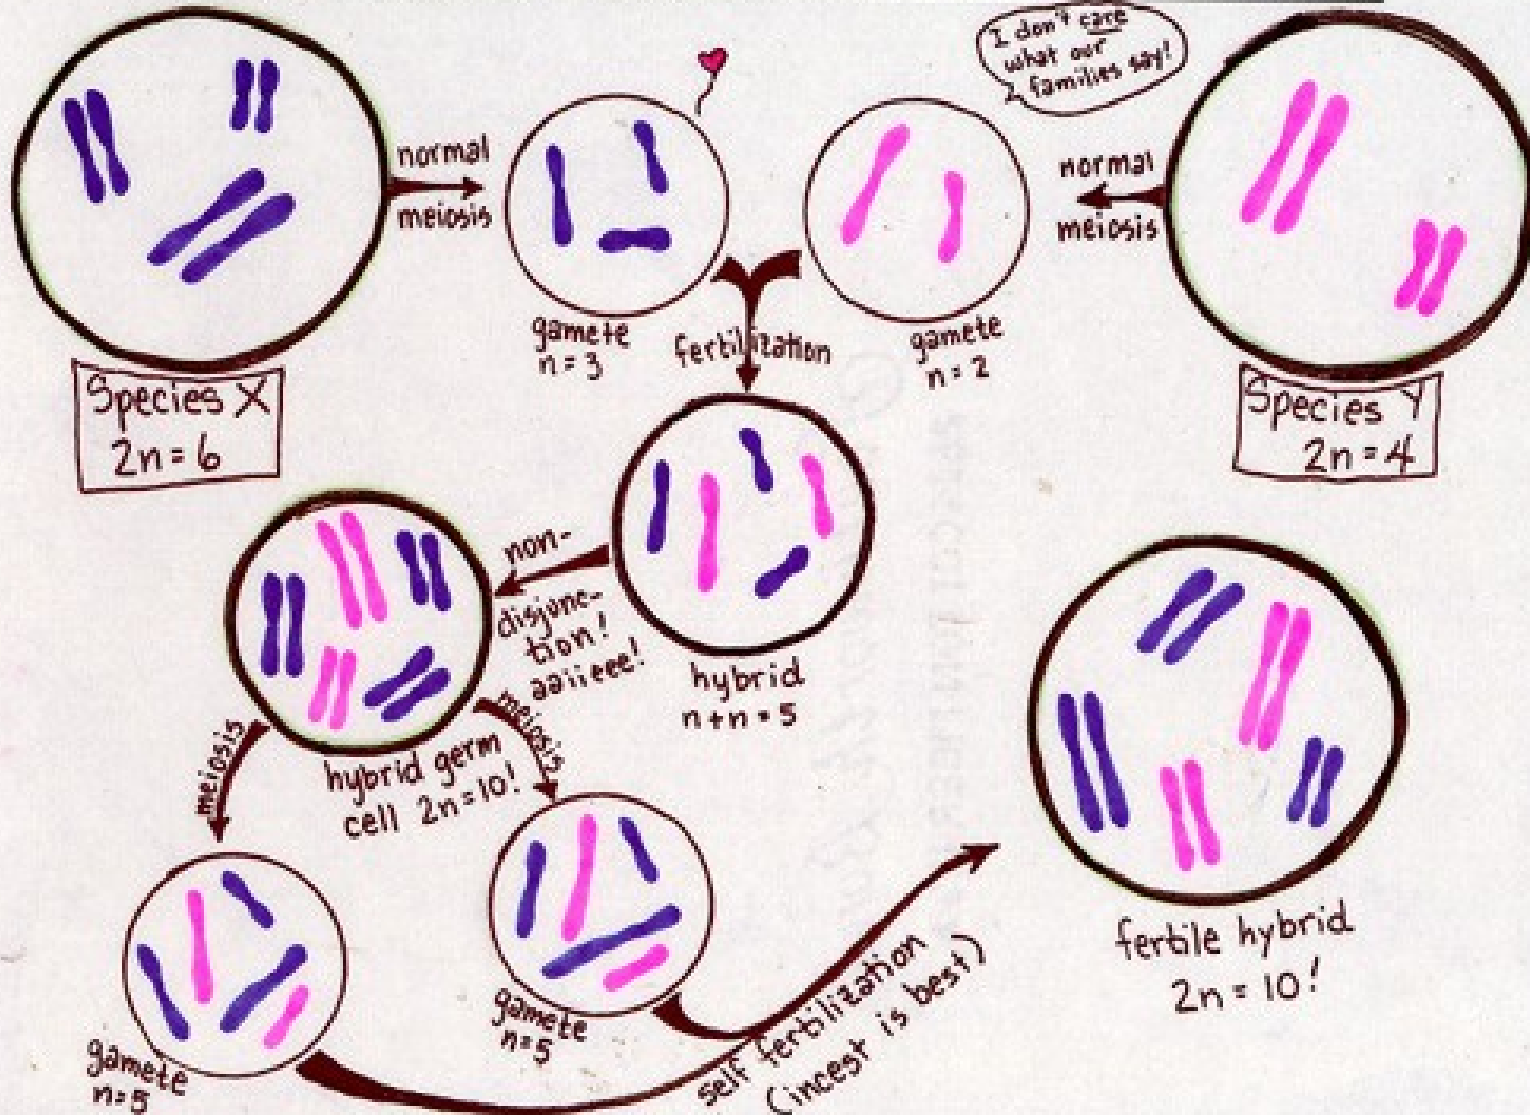 I don't care
what our
families say!
normal
meiosis
normal
meiosis
gamete
n = 3
fertilization
gamete
n = 2
Species X
2n = 6
Species Y
2n = 4
non-
disjunc-
tion!
aaiieee!
hybrid
n+n = 5
meiosis
meiosis
hybrid germ
cell 2n=10!
gamete
n=5
gamete
n=5
self fertilization
(incest is best)
fertile hybrid
2n = 10!